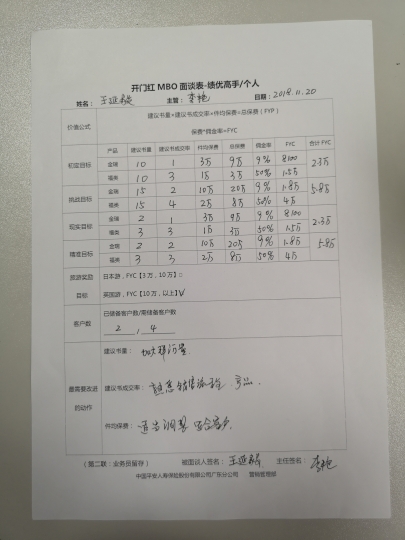 开门红 MBO 面谈表-绩优高手/个人
姓名： 主管：李艳 日期：2018.11.20
价值公式 建议书量*建议书成交率*件均保费=总保费（FYP）
保费*佣金率=FYC
产品 建议书量 建议书成交率 件均保费 总保费 佣金率 FYC 合计 FYC
初定目标 金瑞 10 1 3万 9万 9% 8100 2.3万
福类 10 3 1万 3万 50% 1.5万
挑战目标 金瑞 15 2 10万 20万 9% 1.8万 5.8万
福类 15 4 2万 8万 50% 4万
现实目标 金瑞 2 1 3万 9万 9% 8100 2.3万
福类 3 3 1万 3万 50% 1.5万
精准目标 金瑞 2 2 10万 20万 9% 1.8万 5.8万
福类 3 3 2万 8万 50% 4万
旅游奖励 日本游，FYC【3万，10万】□
目标 英国游，FYC【10万，以上】√
客户数 已储备客户数/需储备客户数
2 / 4
最需要改进的动作
建议书量：加大拜访量
建议书成交率：熟悉销售流程
件均保费：适当调整
（第二联：业务员留存） 被面谈人签名： 主任签名：李艳
中国平安人寿保险股份有限公司广东分公司 营销管理部